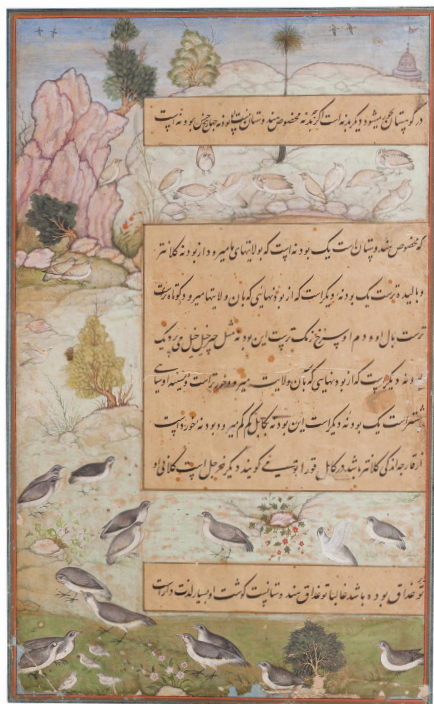 در کوهستان هم میشود دیگر بودنه است اگرچه بودنه مخصوص هندوستان نیست اما چهار پنج جنس بودنه است
که مخصوص هندوستان است یک بودنه است که بولایتهای ما میرود از بودنه کلانتر
و بالیده ترست یک بودنه دیگر است که از بودنهایی که بآن ولایتها میرود کوتاه
ترست بال او و دم او سرخ رنگ ترست این بودنه مثل چیر خیل خیل می پرد یک
بودنه دیگر است که از بودنهایی که بآن ولایت میرود خردتر است و سینه او سیاه
بیشتر است یک بودنه دیگر است این بودنه بکابل کم کم میرود بودنه خورد است
از قارچه اندکی کلانتر باشد در کابل قوراتو می گویند دیگر خرچل است کلانی او
تو غداق بوده باشد غالبا تو غداق هندوستانست گوشت او بسیار لذت دار است